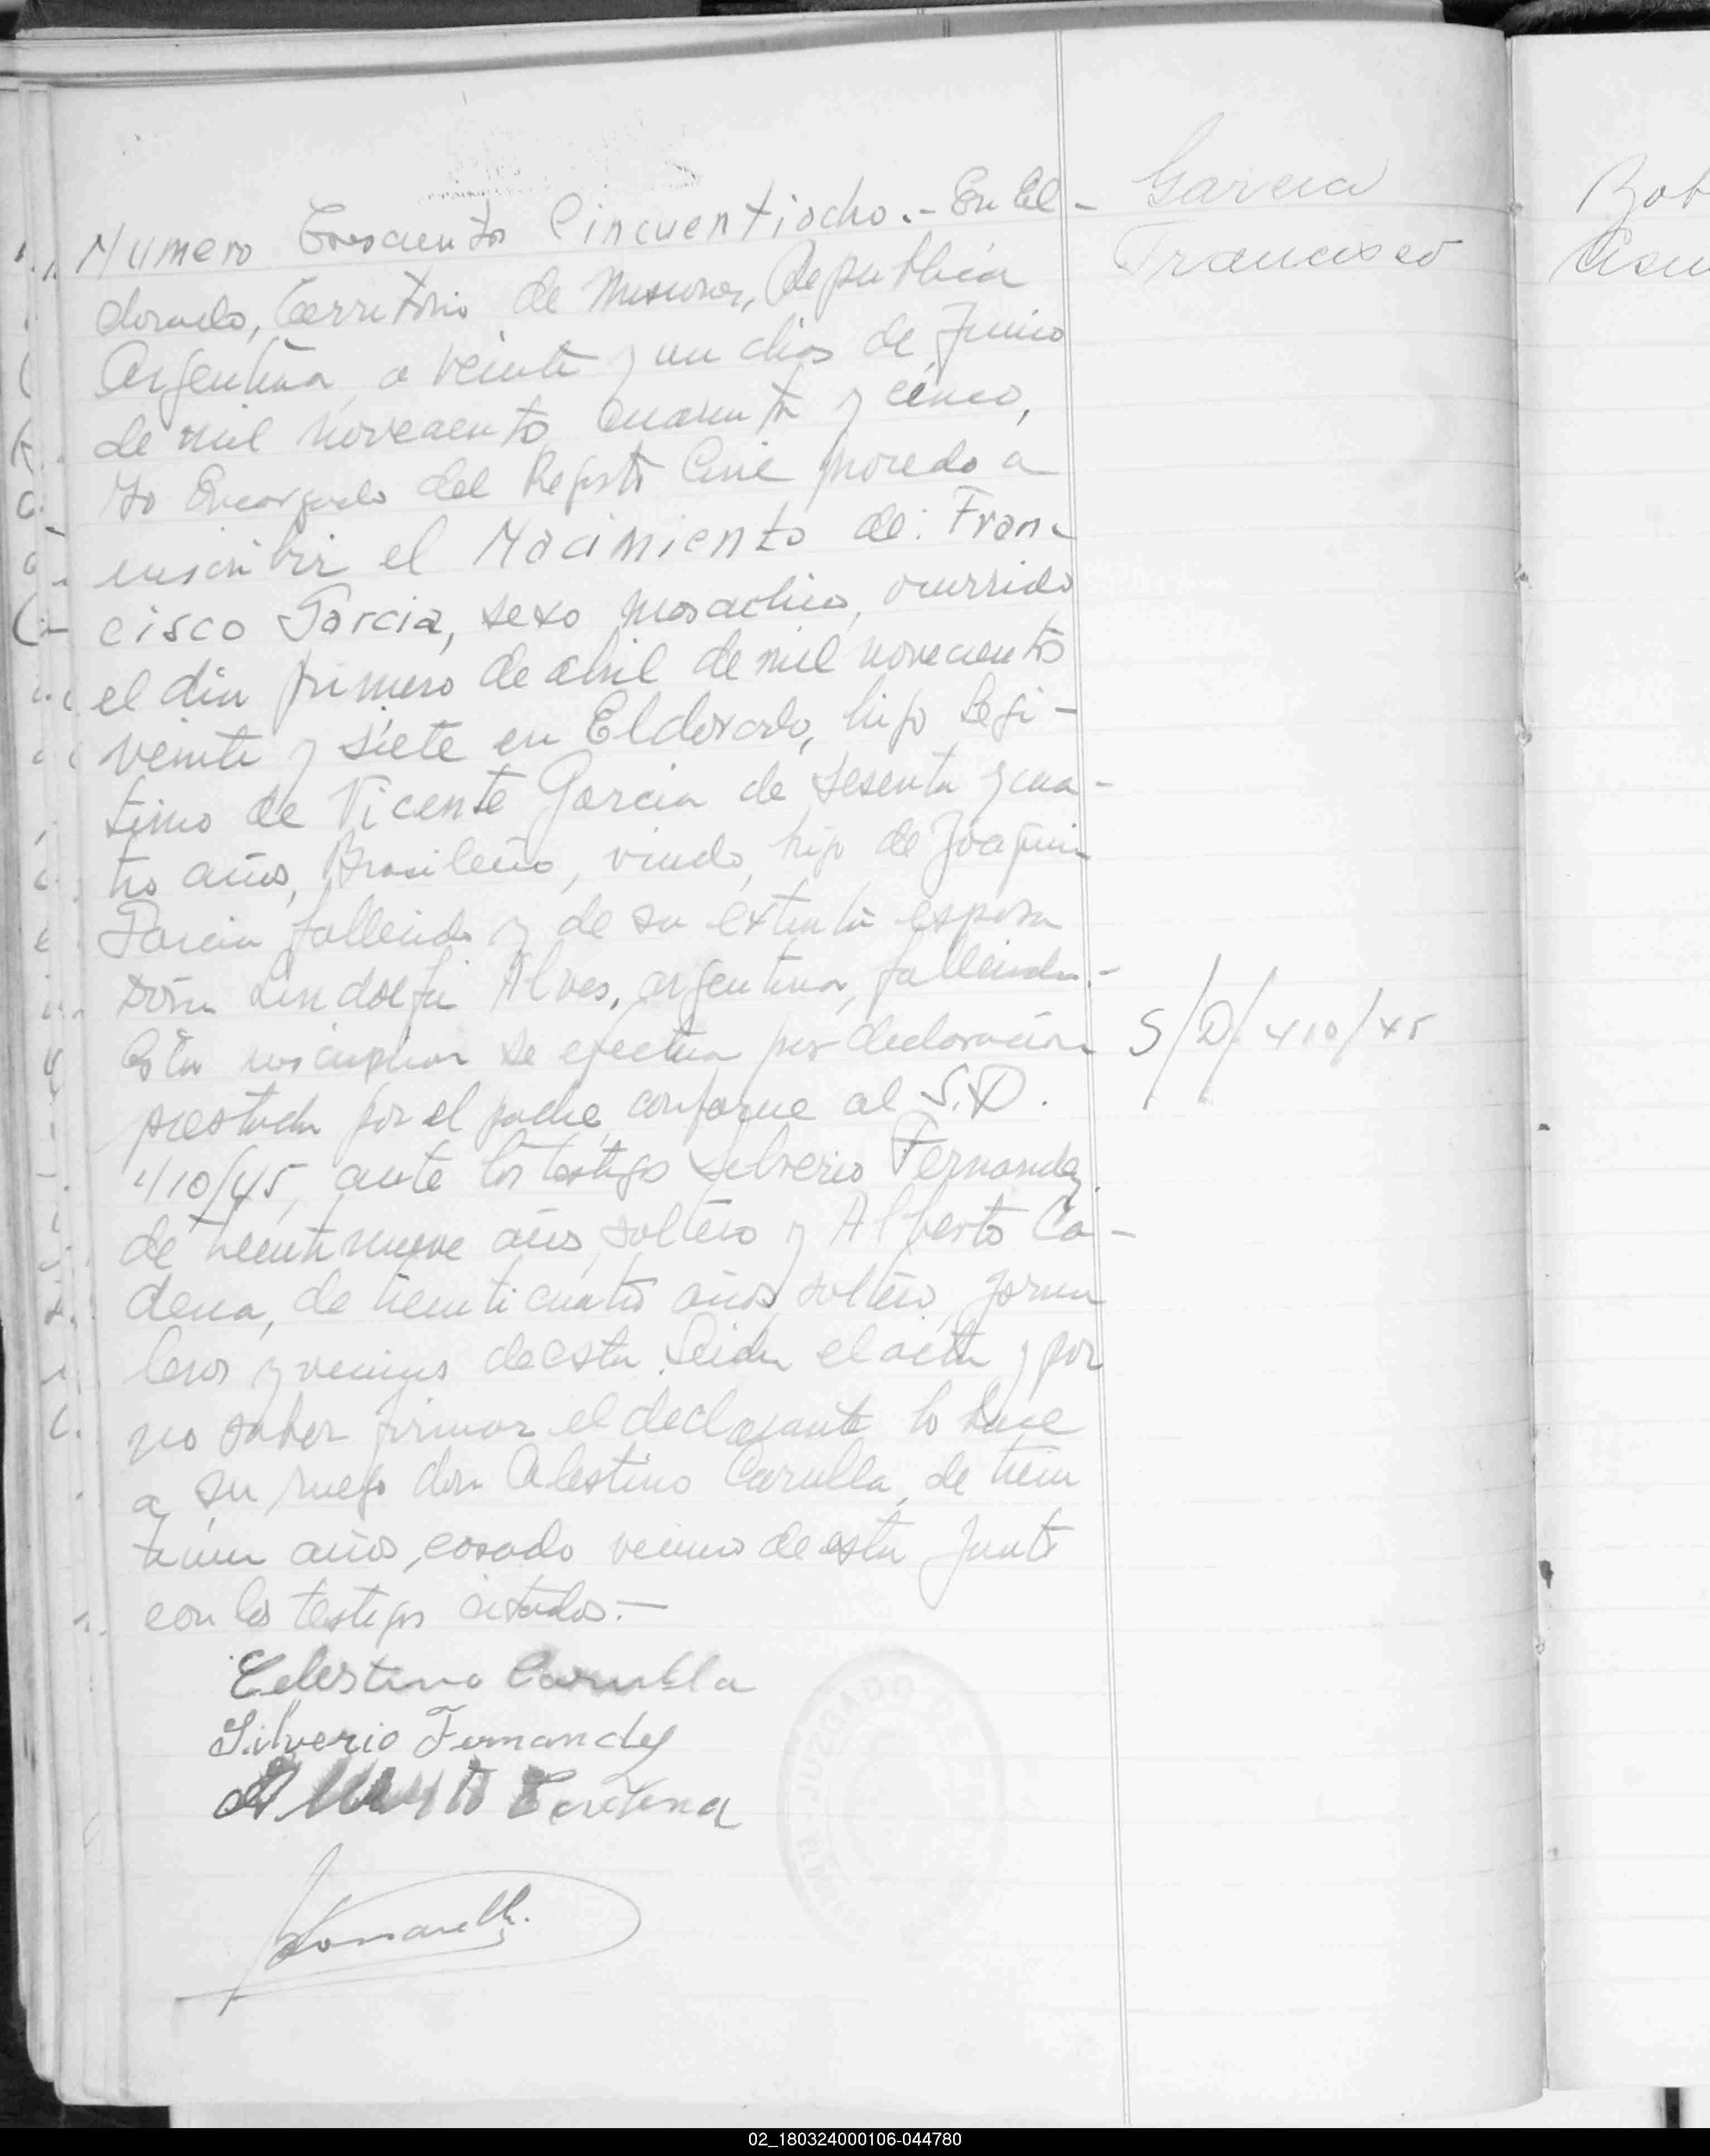 Garcia
Francisco
Numero Trescientos Cincuentiocho.- En El-
dorado, Territorio de Misiones, Republica
Argentina, a veinte y un dias de Junio
de mil novecientos cuarenta y cinco,
Yo Encargado del Registro Civil procedo a
inscribir el Nacimiento de: Fran-
cisco Garcia, sexo masculino, ocurrido
el dia primero de abril de mil novecientos
veinte y siete en Eldorado, hijo legi-
timo de Vicente Garcia de sesenta y cua-
tro años, Brasileño, viudo, hijo de Joaquin
Garcia fallecido y de su extinta esposa
Doña Lindolfa Alves, argentina, fallecida.-
Esta inscripcion se efectua por declaración
prestada por el padre, conforme al S.D.
410/45, ante los testigos Silverio Fernandez
de treintinueve años, soltero y Alberto Ca-
dena, de treinticuatro años, soltero, jorna
leros y vecinos de esta. Leida el acta y por
no saber firmar el declarante lo hace
a su ruego don Celestino Carulla, de trein
tiun años, casado vecino de esta junto
con los testigos citados.-
S/D/410/45
Celestino Carulla
Silverio Fernandez
Alberto Cadena
JUZGADO DE
Bob